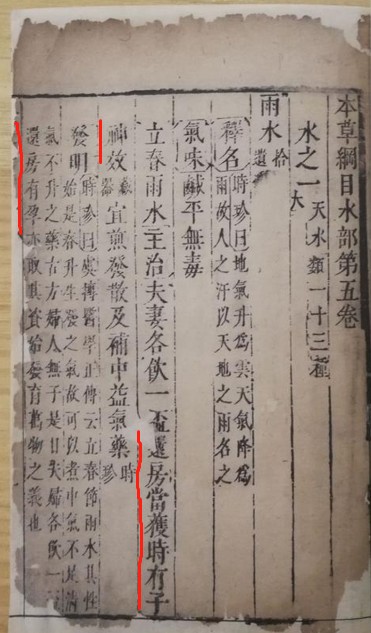 本草綱目水部第五卷
水之一 天水類一十三種
雨水 拾遺
釋名 時珍曰地氣升為雲天氣降為
雨故人之汗以天地之雨名之
氣味鹹平無毒
立春雨水主治夫妻各飲一盃還房當獲時有子
神效 藏器 宜煎發散及補中益氣藥 時珍
發明 時珍曰虞摶醫學正傳云立春節雨水其性
始是春升生發之氣故可以煮中氣不足清
氣不升之藥古方婦人無子是日夫婦各飲一
還房有孕亦取其資始發育萬物之義也